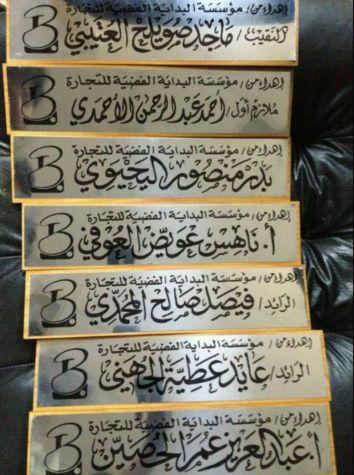 إهداء من / مؤسسة البداية الفضية للتجارة
النقيب / ماجد صويلح العتيبي
إهداء من / مؤسسة البداية الفضية للتجارة
ملازم أول / أحمد عبد الرحمن الأحمدي
إهداء من / مؤسسة البداية الفضية للتجارة
بدر منصور اليحيوي
إهداء من / مؤسسة البداية الفضية للتجارة
أ. ناهس عويض العوفي
إهداء من / مؤسسة البداية الفضية للتجارة
الرائد / فيصل صالح المحمدي
إهداء من / مؤسسة البداية الفضية للتجارة
الرائد / عايد عطية الجهني
إهداء من / مؤسسة البداية الفضية للتجارة
أ. عبد العزيز عمر الحصين